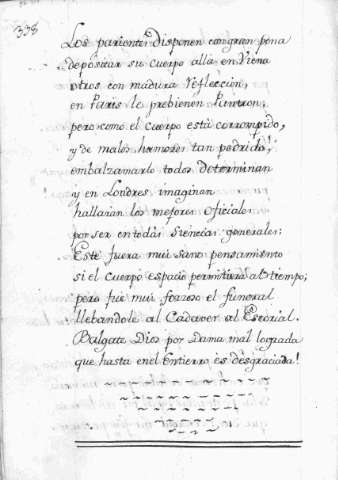 338
Los parientes Disponen con gran pena
depositar su cuerpo allá en Viena
otros con madura reflección,
en Paris le prebienen Panteon,
pero como el cuerpo está corrompido,
y de malos humores tan podrido,
embalzamarlo todos determinan
y en Londres imaginan
hallarán los mejores oficiales
por ser en todas siencias generales:
Este fuera mui sano pensamiento
si el cuerpo espacio permitiera al tiempo;
pero fué mui forzoso el funeral
llebandole al Cadaver al Escorial.
Balgate Dios por Dama mal lograda
que hasta en el Entierro es desgraciada!